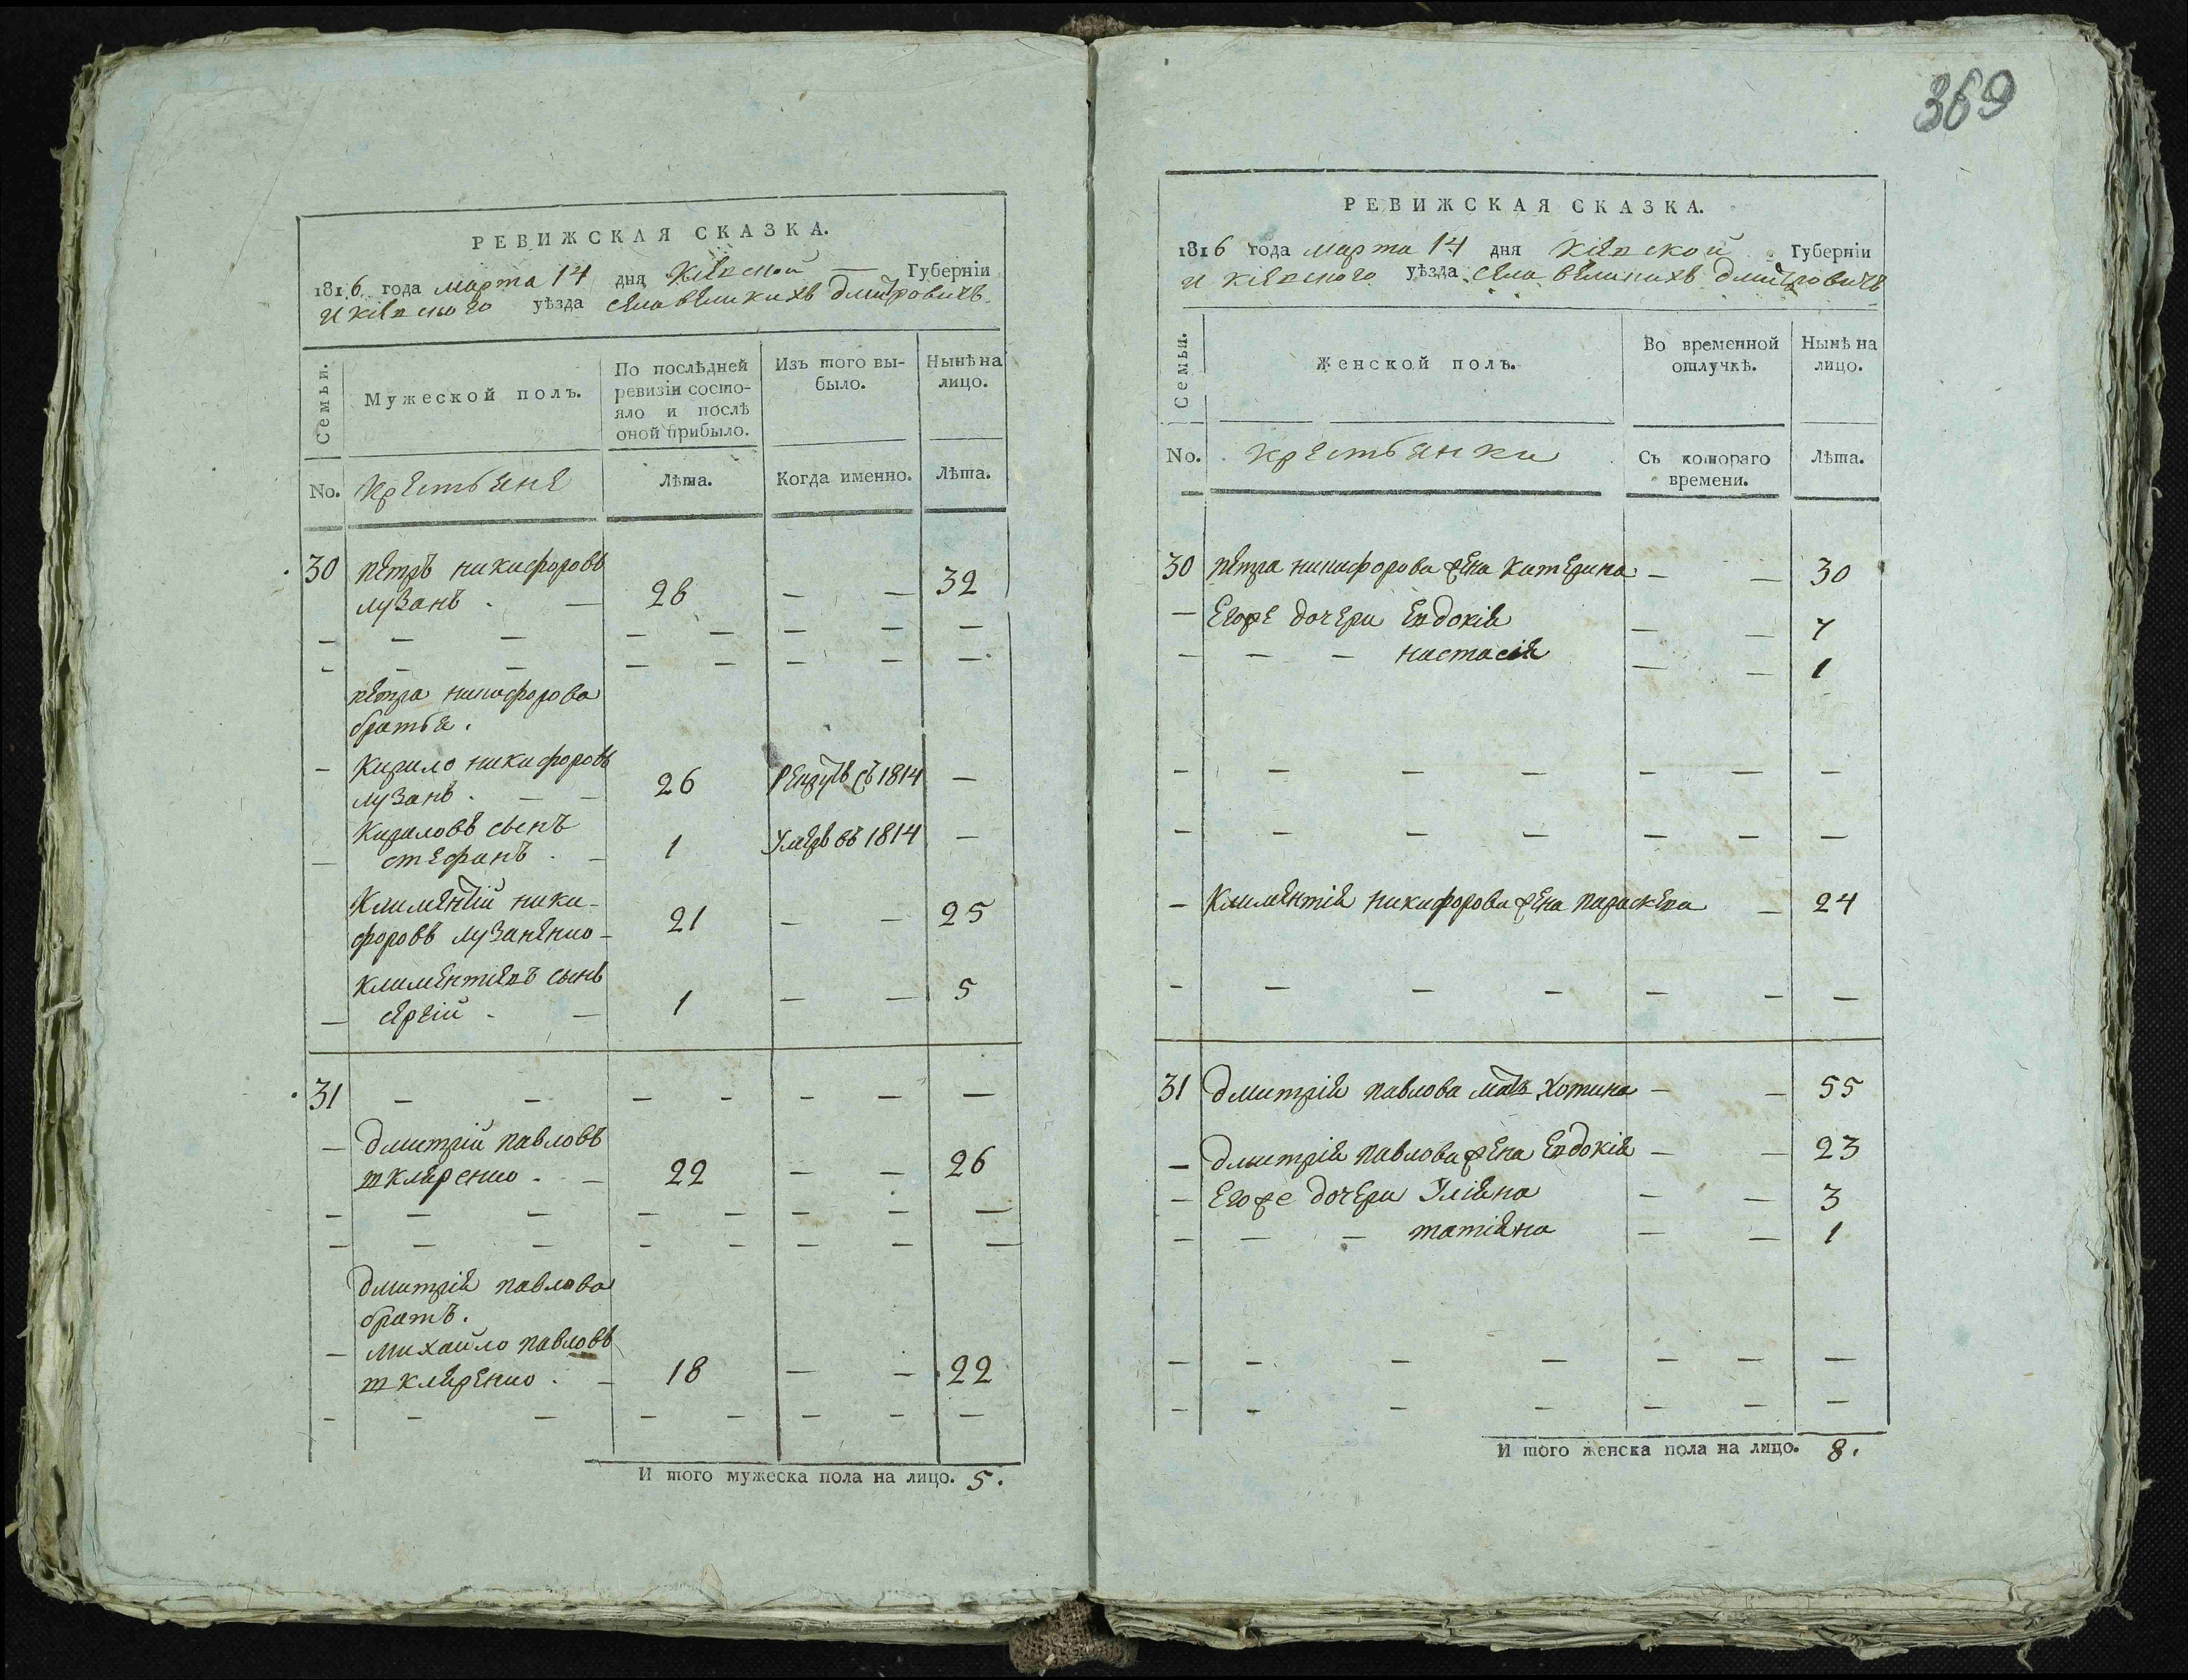 РЕВИЖСКАЯ СКАЗКА.
1816 года марта 14 дня Кіевской — Губерніи
и кіевского уѣзда села великихъ дмитровичъ
Семьи.
Мужеской полъ.
По послѣдней
ревизіи состо-
яло и послѣ
оной прибыло.
Изъ того вы-
было.
Нынѣ на
лицо.
No. крестьяне Лѣта. Когда именно. Лѣта.
30 петръ никифоровъ
лузанъ. — 28 — — 32
— — — — — — — —
— — — — — — — —
петра никифорова
братья.
— Кирило никифоровъ
лузанъ. — — 26 съ 1814 —
Кириловъ сынъ
— стефанъ. — 1 Умеръ въ 1814 —
Климентій ники-
форовъ лузаненко — 21 — — 25
климентіевъ сынъ
— сергій. — 1 — — 5
31 — — — — — — —
— дмитрій павловъ
шкляренко. — 22 — — 26
— — — — — — — —
— — — — — — — —
дмитрія павлова
братъ.
— михайло павловъ
шкляренко. — 18 — — 22
— — — — — — — —
И того мужеска пола на лицо. 5.
369
РЕВИЖСКАЯ СКАЗКА.
1816 года марта 14 дня кіевской Губерніи
и кіевского уѣзда села великихъ дмитровичъ
Семьи.
Женской полъ.
Во временной
отлучкѣ.
Нынѣ на
лицо.
No. крестьянки Съ котораго
времени. Лѣта.
30 петра никифорова жена катерина — — 30
— Егоже дочери Евдокія — — 7
— — — настасія — — 1
— — — — — — —
— — — — — — —
— Климентія никифорова жена параскева — 24
— — — — — — —
31 дмитрія павлова мать Хотина — — 55
— дмитрія павлова жена Евдокія — — 23
— Егоже дочери Уліяна — — 3
— — — татіяна — — 1
— — — — — — —
— — — — — — —
И того женска пола на лицо. 8.